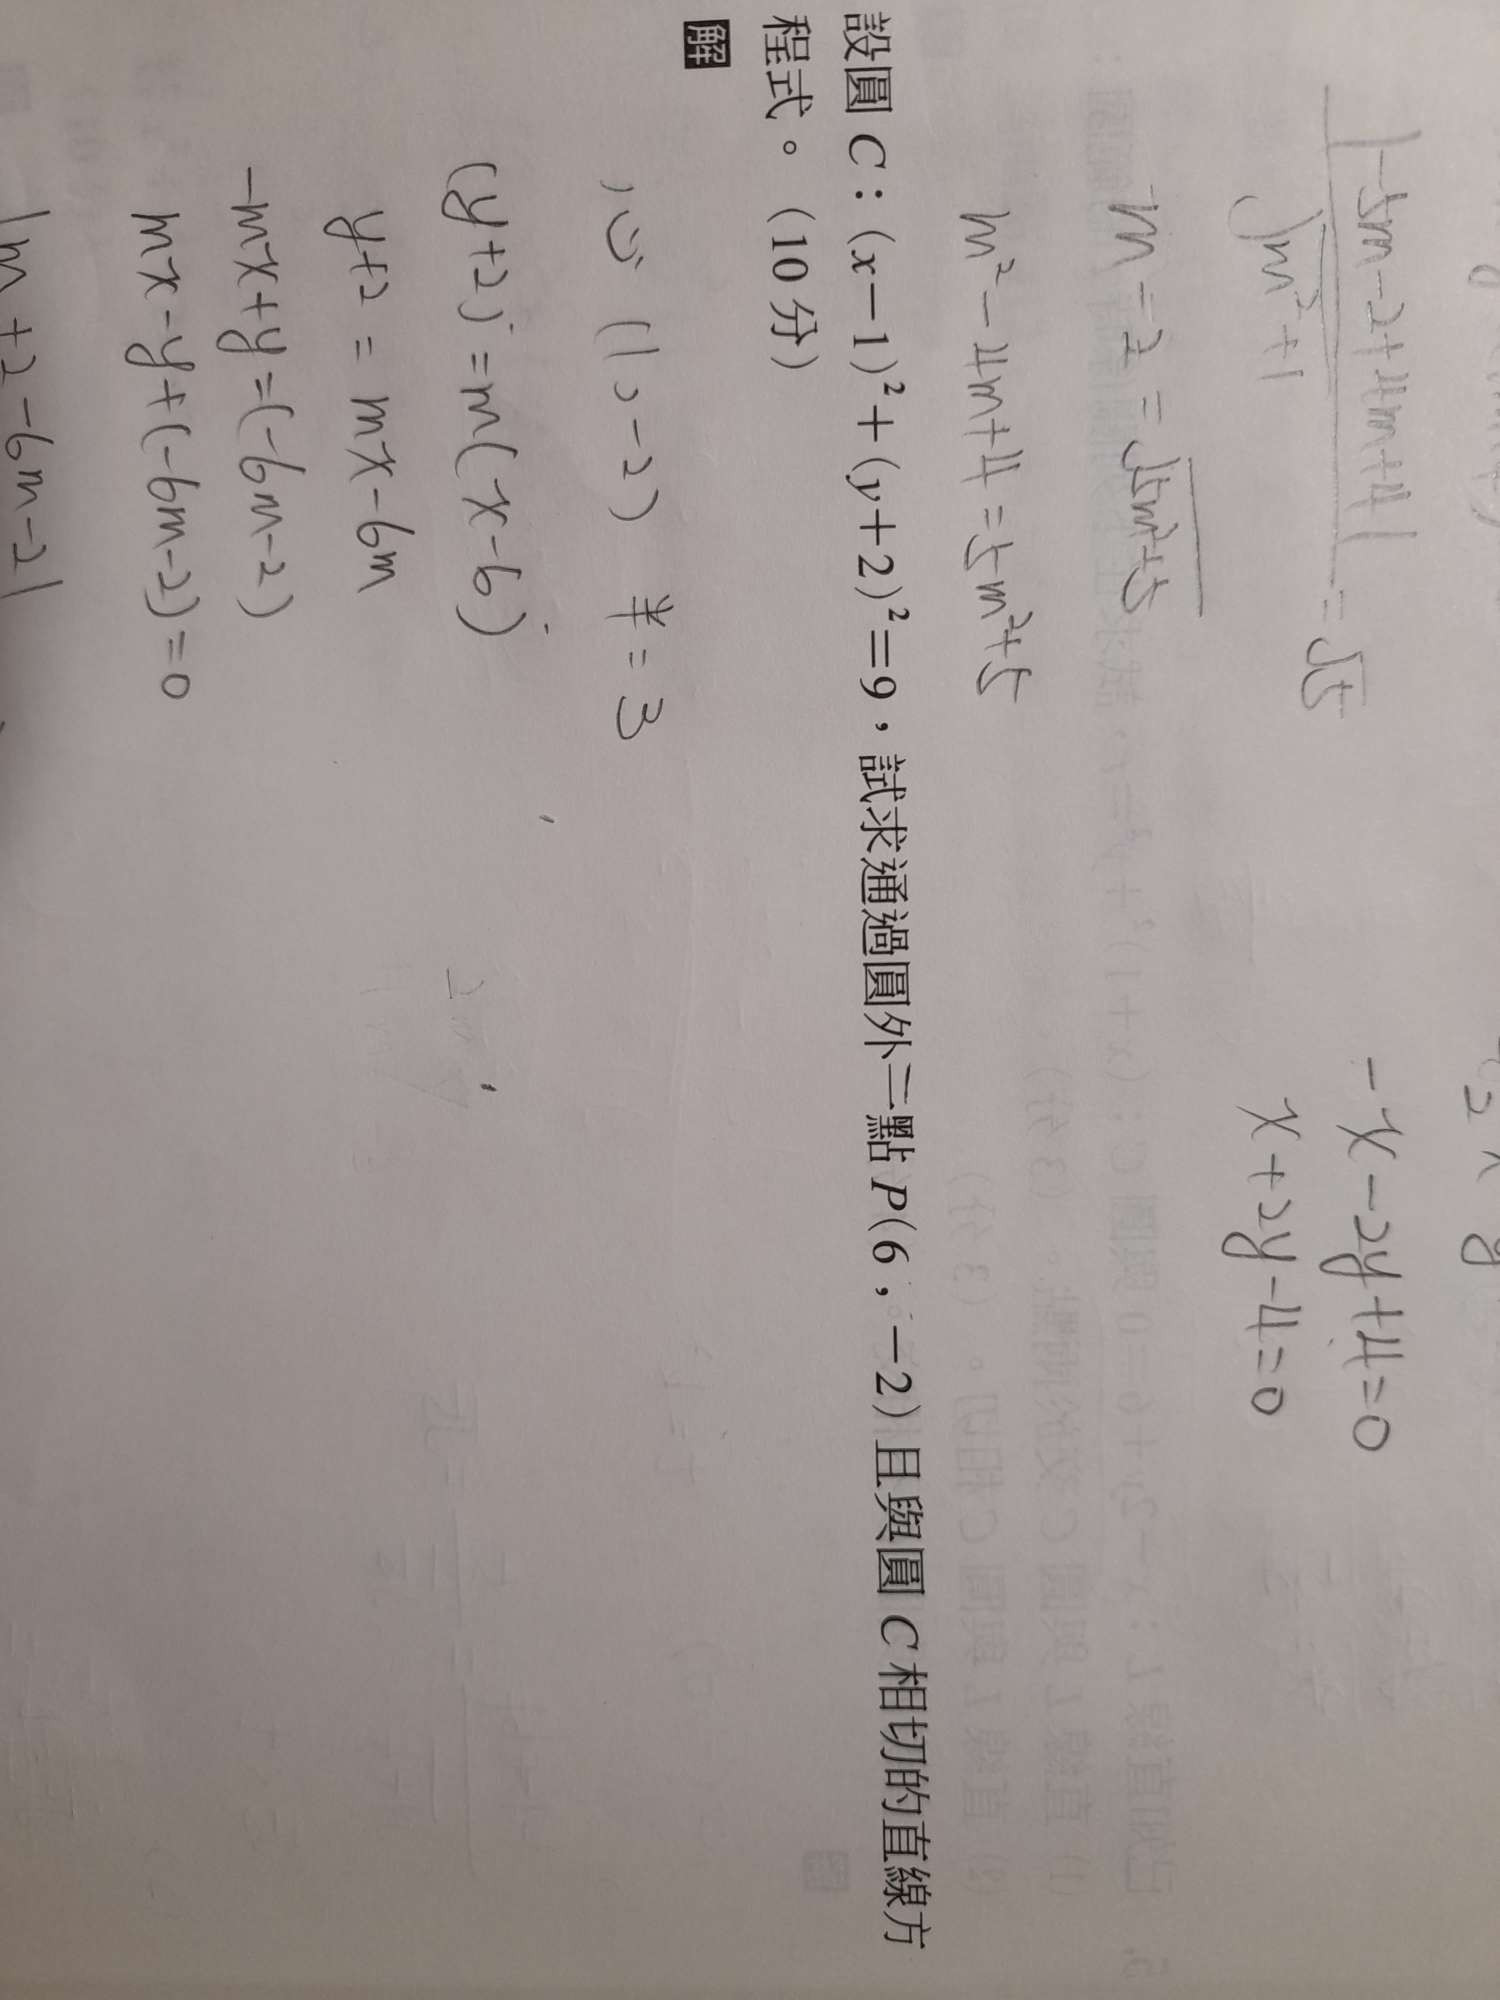 |-5m-2+4m+4|
√m²+1
=√5
-x-2y+4=0
x+2y-4=0
-m=2=√5m²+5
m²-4m+4=5m²+5
設圓 C：(x－1)²＋(y＋2)²＝9，試求通過圓外一點 P(6，－2) 且與圓 C 相切的直線方
程式。（10 分）
解
心 (1,-2) 半=3
(y+2)=m(x-6)
y+2=mx-6m
-mx+y=(-6m-2)
mx-y+(-6m-2)=0
|m+2-6m-2|